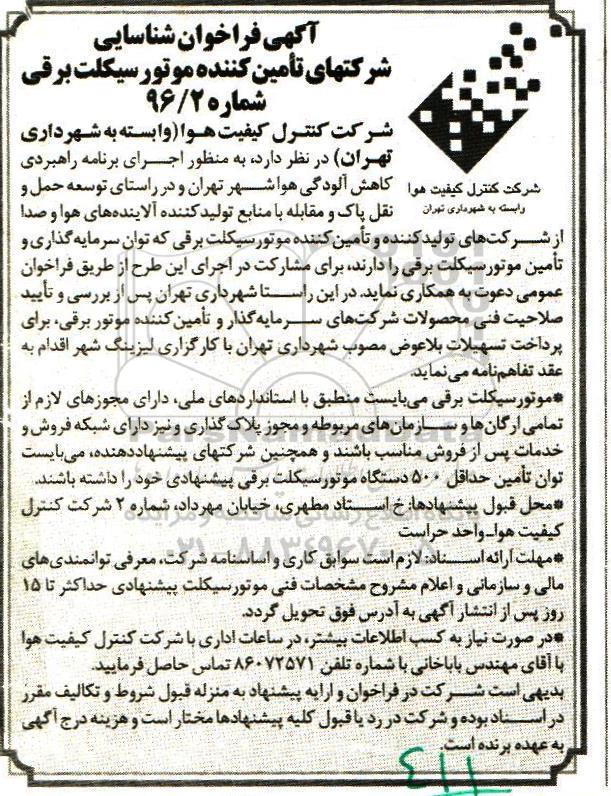 آگهی فراخوان شناسایی
شرکتهای تأمین کننده موتور سیکلت برقی
شماره ۹۶/۲
شرکت کنترل کیفیت هوا
وابسته به شهرداری تهران
شرکت کنترل کیفیت هوا (وابسته به شهرداری
تهران) در نظر دارد، به منظور اجرای برنامه راهبردی
کاهش آلودگی هوا شهر تهران و در راستای توسعه حمل و
نقل پاک و مقابله با منابع تولیدکننده آلاینده‌های هوا و صدا
از شرکت‌های تولیدکننده و تأمین‌کننده موتورسیکلت برقی که توان سرمایه‌گذاری و
تأمین موتورسیکلت برقی را دارند، برای مشارکت در اجرای این طرح از طریق فراخوان
عمومی دعوت به همکاری نماید. در این راستا شهرداری تهران پس از بررسی و تأیید
صلاحیت فنی محصولات شرکت‌های سرمایه‌گذار و تأمین‌کننده موتور برقی، برای
پرداخت تسهیلات بلاعوض مصوب شهرداری تهران با کارگزاری لیزینگ شهر اقدام به
عقد تفاهم‌نامه می‌نماید.
*موتورسیکلت برقی می‌بایست منطبق با استانداردهای ملی، دارای مجوزهای لازم از
تمامی ارگان‌ها و سازمان‌های مربوطه و مجوز پلاک‌گذاری و نیز دارای شبکه فروش و
خدمات پس از فروش مناسب باشند و همچنین شرکتهای پیشنهاددهنده، می‌بایست
توان تأمین حداقل ۵۰۰ دستگاه موتورسیکلت برقی پیشنهادی خود را داشته باشند.
*محل قبول پیشنهادها: خ استاد مطهری، خیابان مهرداد، شماره ۲ شرکت کنترل
کیفیت هوا-واحد حراست
*مهلت ارائه اسناد: لازم است سوابق کاری و اساسنامه شرکت، معرفی توانمندی‌های
مالی و سازمانی و اعلام مشروح مشخصات فنی موتورسیکلت پیشنهادی حداکثر تا ۱۵
روز پس از انتشار آگهی به آدرس فوق تحویل گردد.
*در صورت نیاز به کسب اطلاعات بیشتر، در ساعات اداری با شرکت کنترل کیفیت هوا
با آقای مهندس باباخانی با شماره تلفن ۸۶۰۷۲۵۷۱ تماس حاصل فرمایید.
بدیهی است شرکت در فراخوان و ارایه پیشنهاد به منزله قبول شروط و تکالیف مقرر
در اسناد بوده و شرکت در رد یا قبول کلیه پیشنهادها مختار است و هزینه درج آگهی
به عهده برنده است.
۴۱۱
ParsNamadData
۰۲۱-۸۸۳۴۹۶۷۰